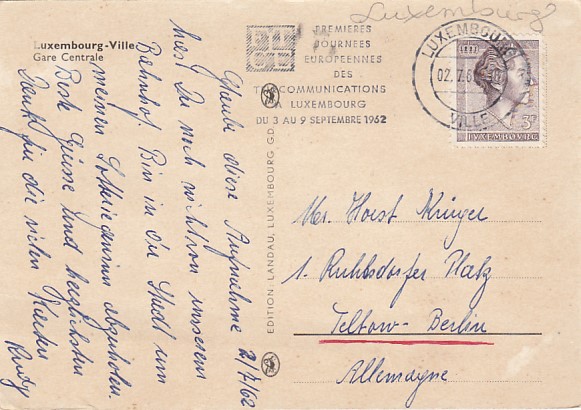 Luxembourg
Luxembourg-Ville
Gare Centrale
PREMIERES
JOURNEES
EUROPEENNES
DES
TELECOMMUNICATIONS
A LUXEMBOURG
DU 3 AU 9 SEPTEMBRE 1962
LUXEMBOURG
02.7.6
VILLE
3F
LUXEMBOURG
EDITION LANDAU, LUXEMBOURG GD.
Glaube diese Aufnahme 2/7/62
hast Du noch nicht von unserem
Bahnhof. Bin in der Stadt um
meinen abzuholen.
Beste Grüsse und herzlichsten
Dank für die vielen Karten
Rudy
Mr. Horst Krüger
1. Ruhlsdorfer Platz
Teltow-Berlin
Allemagne